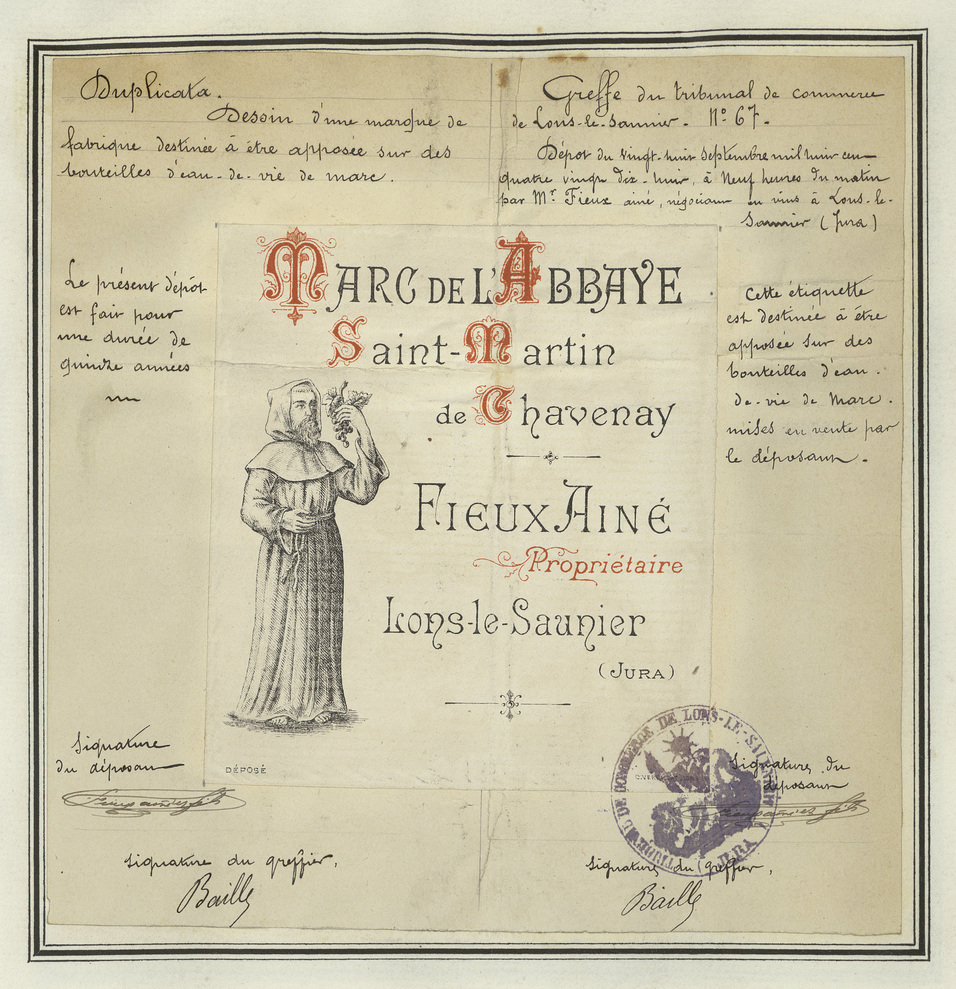 Duplicata.
Dessin d'une marque de
fabrique destinée à être apposée sur des
bouteilles d'eau-de-vie de marc.
Greffe du tribunal de commerce
de Lons-le-Saunier - N° 67.
Dépôt du vingt-huit septembre mil huit cent
quatre vingt dix-huit, à neuf heures du matin
par Mr Fieux ainé, négociant en vins à Lons-le-
Saunier (Jura)
Le présent dépôt
est fait pour
une durée de
quinze années
Cette étiquette
est destinée à être
apposée sur des
bouteilles d'eau-
de-vie de Marc.
mises en vente par
le déposant.
MARC DE L'ABBAYE
Saint-Martin
de Chavenay
FIEUX AINÉ
Propriétaire
Lons-le-Saunier
(JURA)
DÉPOSÉ
Signature
du déposant
Signature du
déposant
TRIBUNAL DE COMMERCE DE LONS-LE-SAUNIER
JURA
Signature du greffier,
Baille
Signature du greffier,
Baille